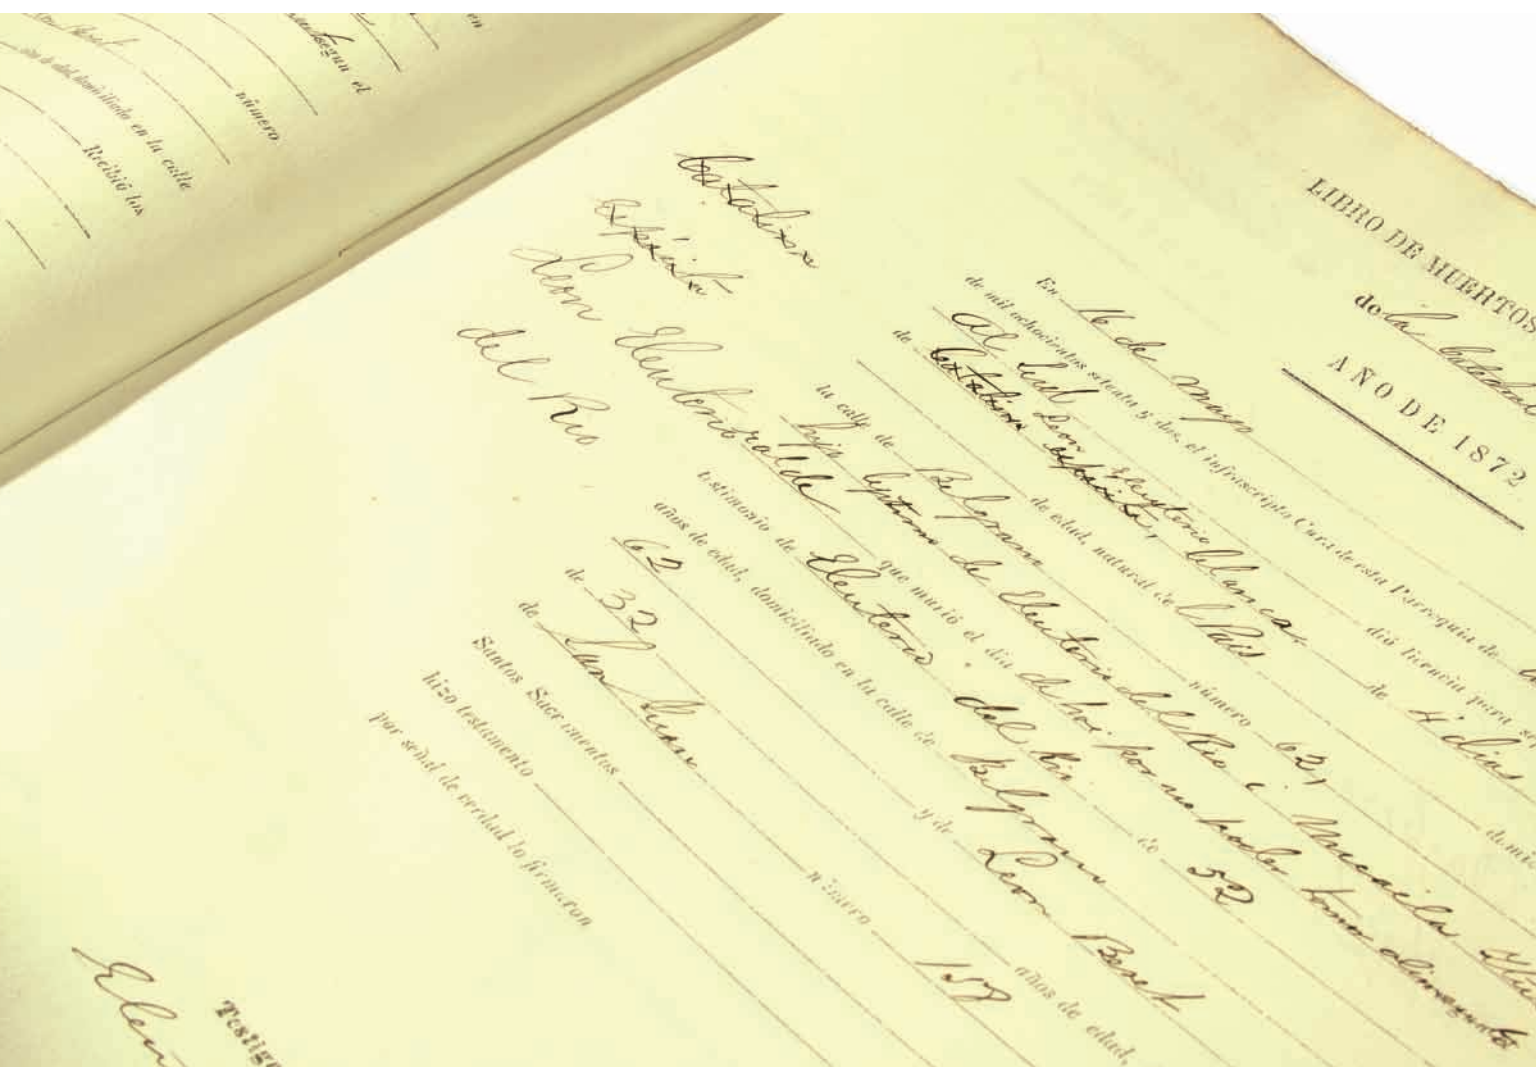 segun el
número
años de edad, domiciliado en la calle
Recibió los
LIBRO DE MUERTOS
de la
AÑO DE 1872
Catalina
expósita
Leon Eleuterio
del Rio
En 16 de Mayo
de mil ochocientos setenta y dos, el infrascripto Cura de esta Parroquia de
al Sud dió licencia para
de Leon Eleuterio blanca de 4 dias
Catalina expósita,
de edad, natural de l Pais
la calle de Belgrano número 62,
hijo legitimo de Eleuterio del Rio i Micaela
que murió el dia de hoi por no poder tomar
testimonio de Eleuterio del Rio de 52
años de edad, domiciliado en la calle de Belgrano
62 y de Leon Beret
de 32 años de edad,
de San Juan número 158
Santos Sacramentos
hizo testamento
por señal de verdad lo firmaron
Testigo